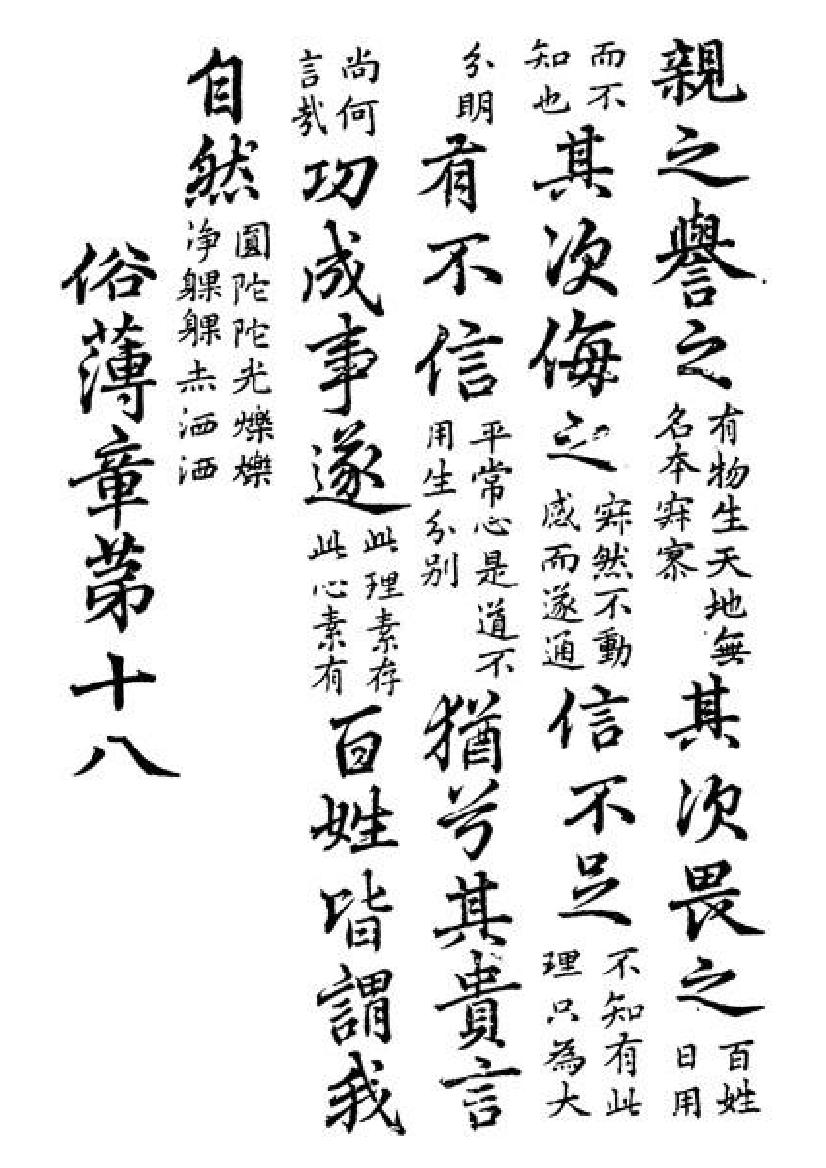 親之譽之有物生天地無名本寂寥其次畏之百姓日用
而不知也其次侮之寂然不動感而遂通信不足不知有此理只為大
分明有不信平常心是道不用生分別猶兮其貴言
尚何言哉功成事遂此理素存此心素有百姓皆謂我
自然圓陀陀光爍爍淨躶躶赤洒洒
俗薄章第十八